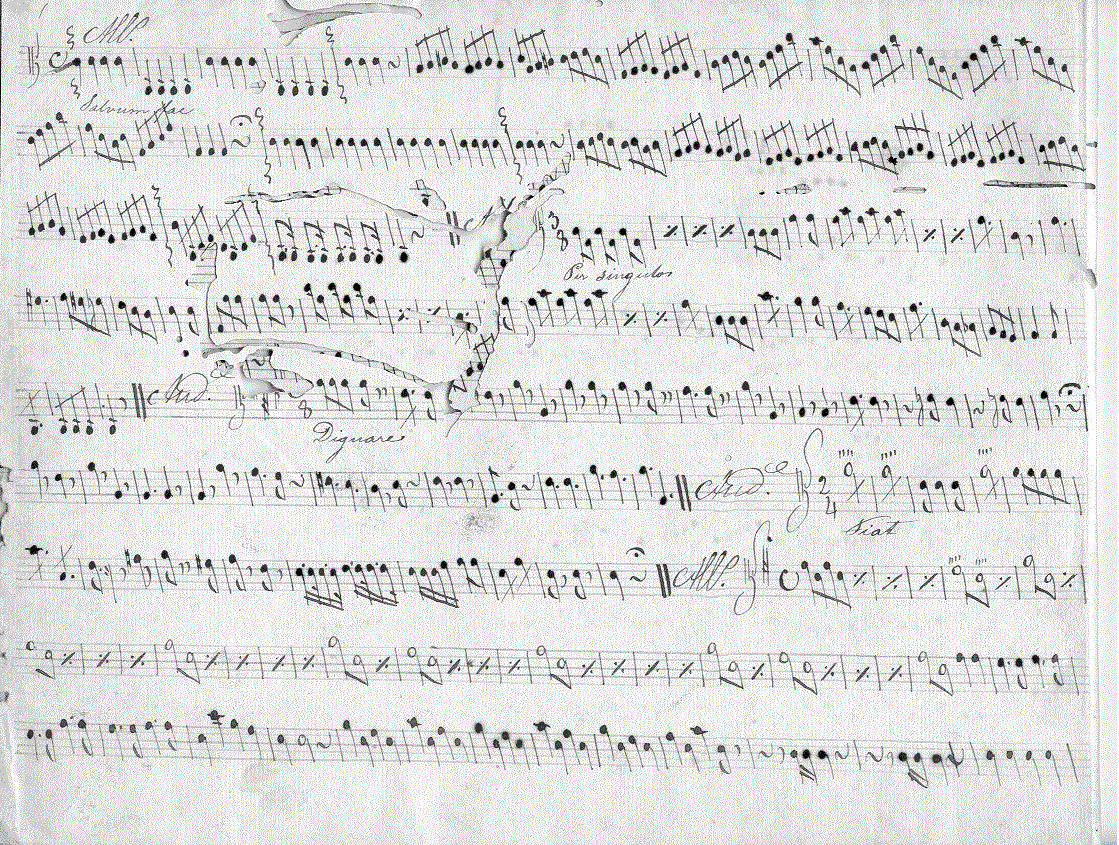 All.º
Salvum fac
3 8
Per singulos
And.e 8
Dignare
And.e 2 4
Fiat
All.º